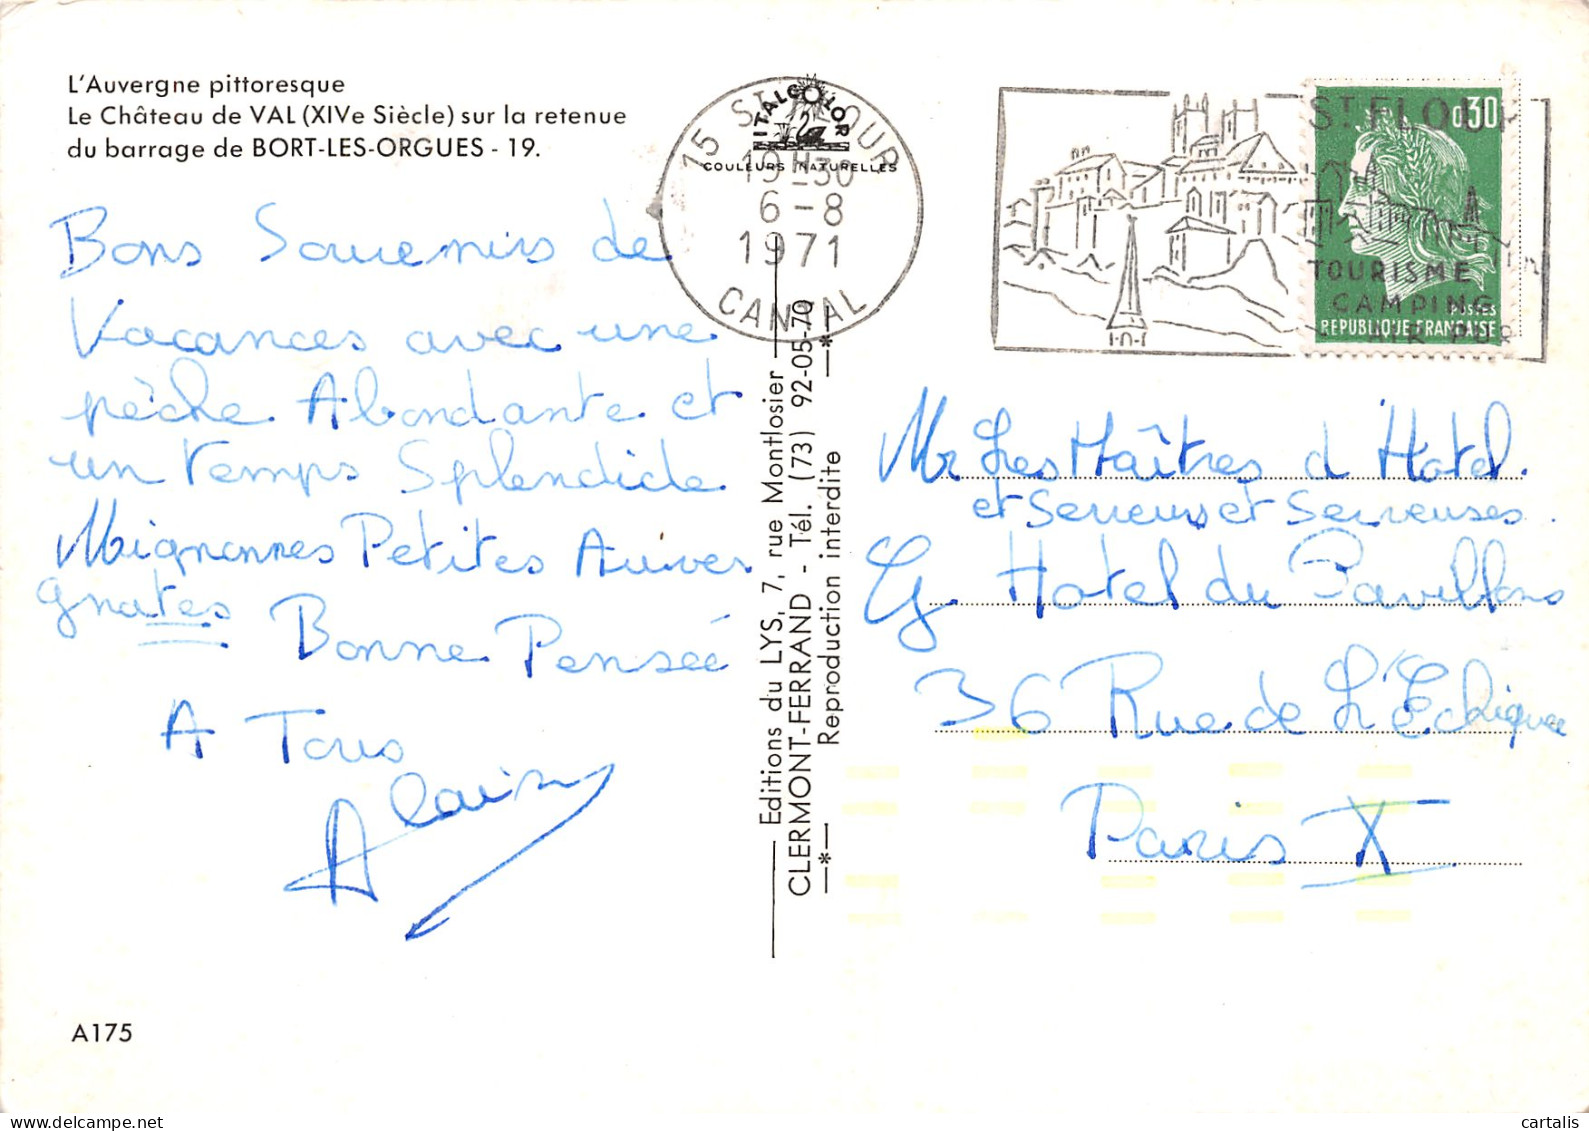 L'Auvergne pittoresque
Le Château de VAL (XIVe Siècle) sur la retenue
du barrage de BORT-LES-ORGUES - 19.
Bons Souvenirs de
Vacances avec une
pêche Abondante et
un temps Splendide
Mignonnes Petites Auver
gnates Bonne Pensée
A Tous
Alain
A175
15 ST FLOUR
19H30
6-8
1971
CANTAL
ITALCOLOR
COULEURS NATURELLES
Editions du LYS, 7, rue Montlosier
CLERMONT-FERRAND - Tél. (73) 92-05-70
—*— Reproduction interdite —*—
ST FLOUR
TOURISME
CAMPING
AIR PUR
0,30
POSTES
REPUBLIQUE FRANÇAISE
Mr Les Maîtres d'Hotel
et Serveurs et Serveuses.
Hotel du Pavillons
36 Rue de L'Echiquier
Paris X
cartalis
delcampe.net